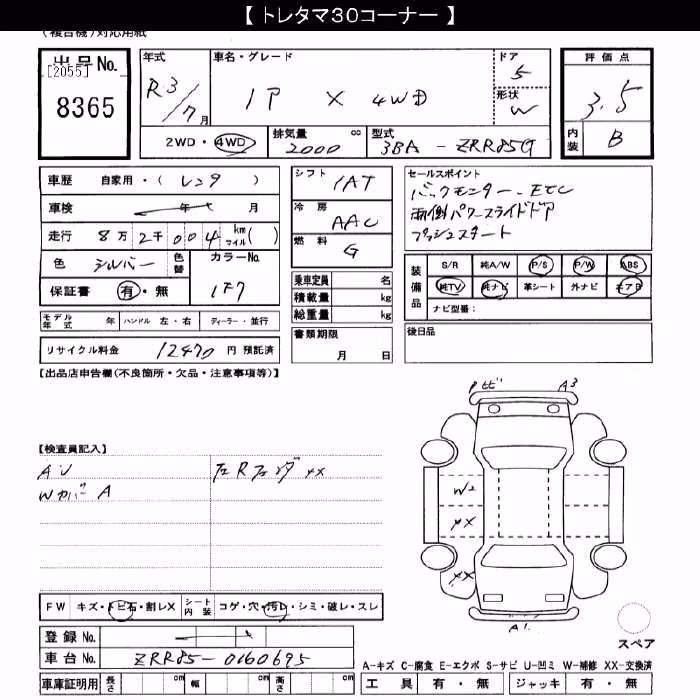 【 トレタマ30コーナー 】
(複合機)対応用紙
出品No.
[2055]
8365
年式
R3/7月
車名・グレード
1P X 4WD
ドア
5
形状
W
2WD・4WD
排気量 cc
2000
型式
3BA-ZRR85G
評価点
3.5
内装
B
車歴 自家用・( レンタ )
車検 年 月
走行 8万2千004 km マイル( )
色 シルバー 色替
カラーNo.
1F7
保証書 有・無
モデル年式 年 ハンドル 左・右 ディーラー・並行
リサイクル料金 12470 円 預託済
シフト
IAT
冷房
AAC
燃料
G
乗車定員 名
積載量 kg
総重量 kg
書類期限
月 日
セールスポイント
バックモニター・ETC
両側パワースライドドア
プッシュスタート
装備品
S/R 純A/W P/S P/W ABS
純TV 純ナビ 革シート 外ナビ エアB
ナビ型番:
後日品
【出品店申告欄(不良箇所・欠品・注意事項等)】
【検査員記入】
AU
左Rフェンダ XX
Wカバー A
Pビ
A3
W2
XX
XX
A1
スペア
FW キズ・トビ石・割レX
シート内装 コゲ・穴・汚レ・シミ・破レ・スレ
登録No.
車台No. ZRR85-0160695
車庫証明用 長さ cm 幅 cm 高さ cm
A-キズ C-腐食 E-エクボ S-サビ U-凹ミ W-補修 XX-交換済
工具 有・無 ジャッキ 有・無